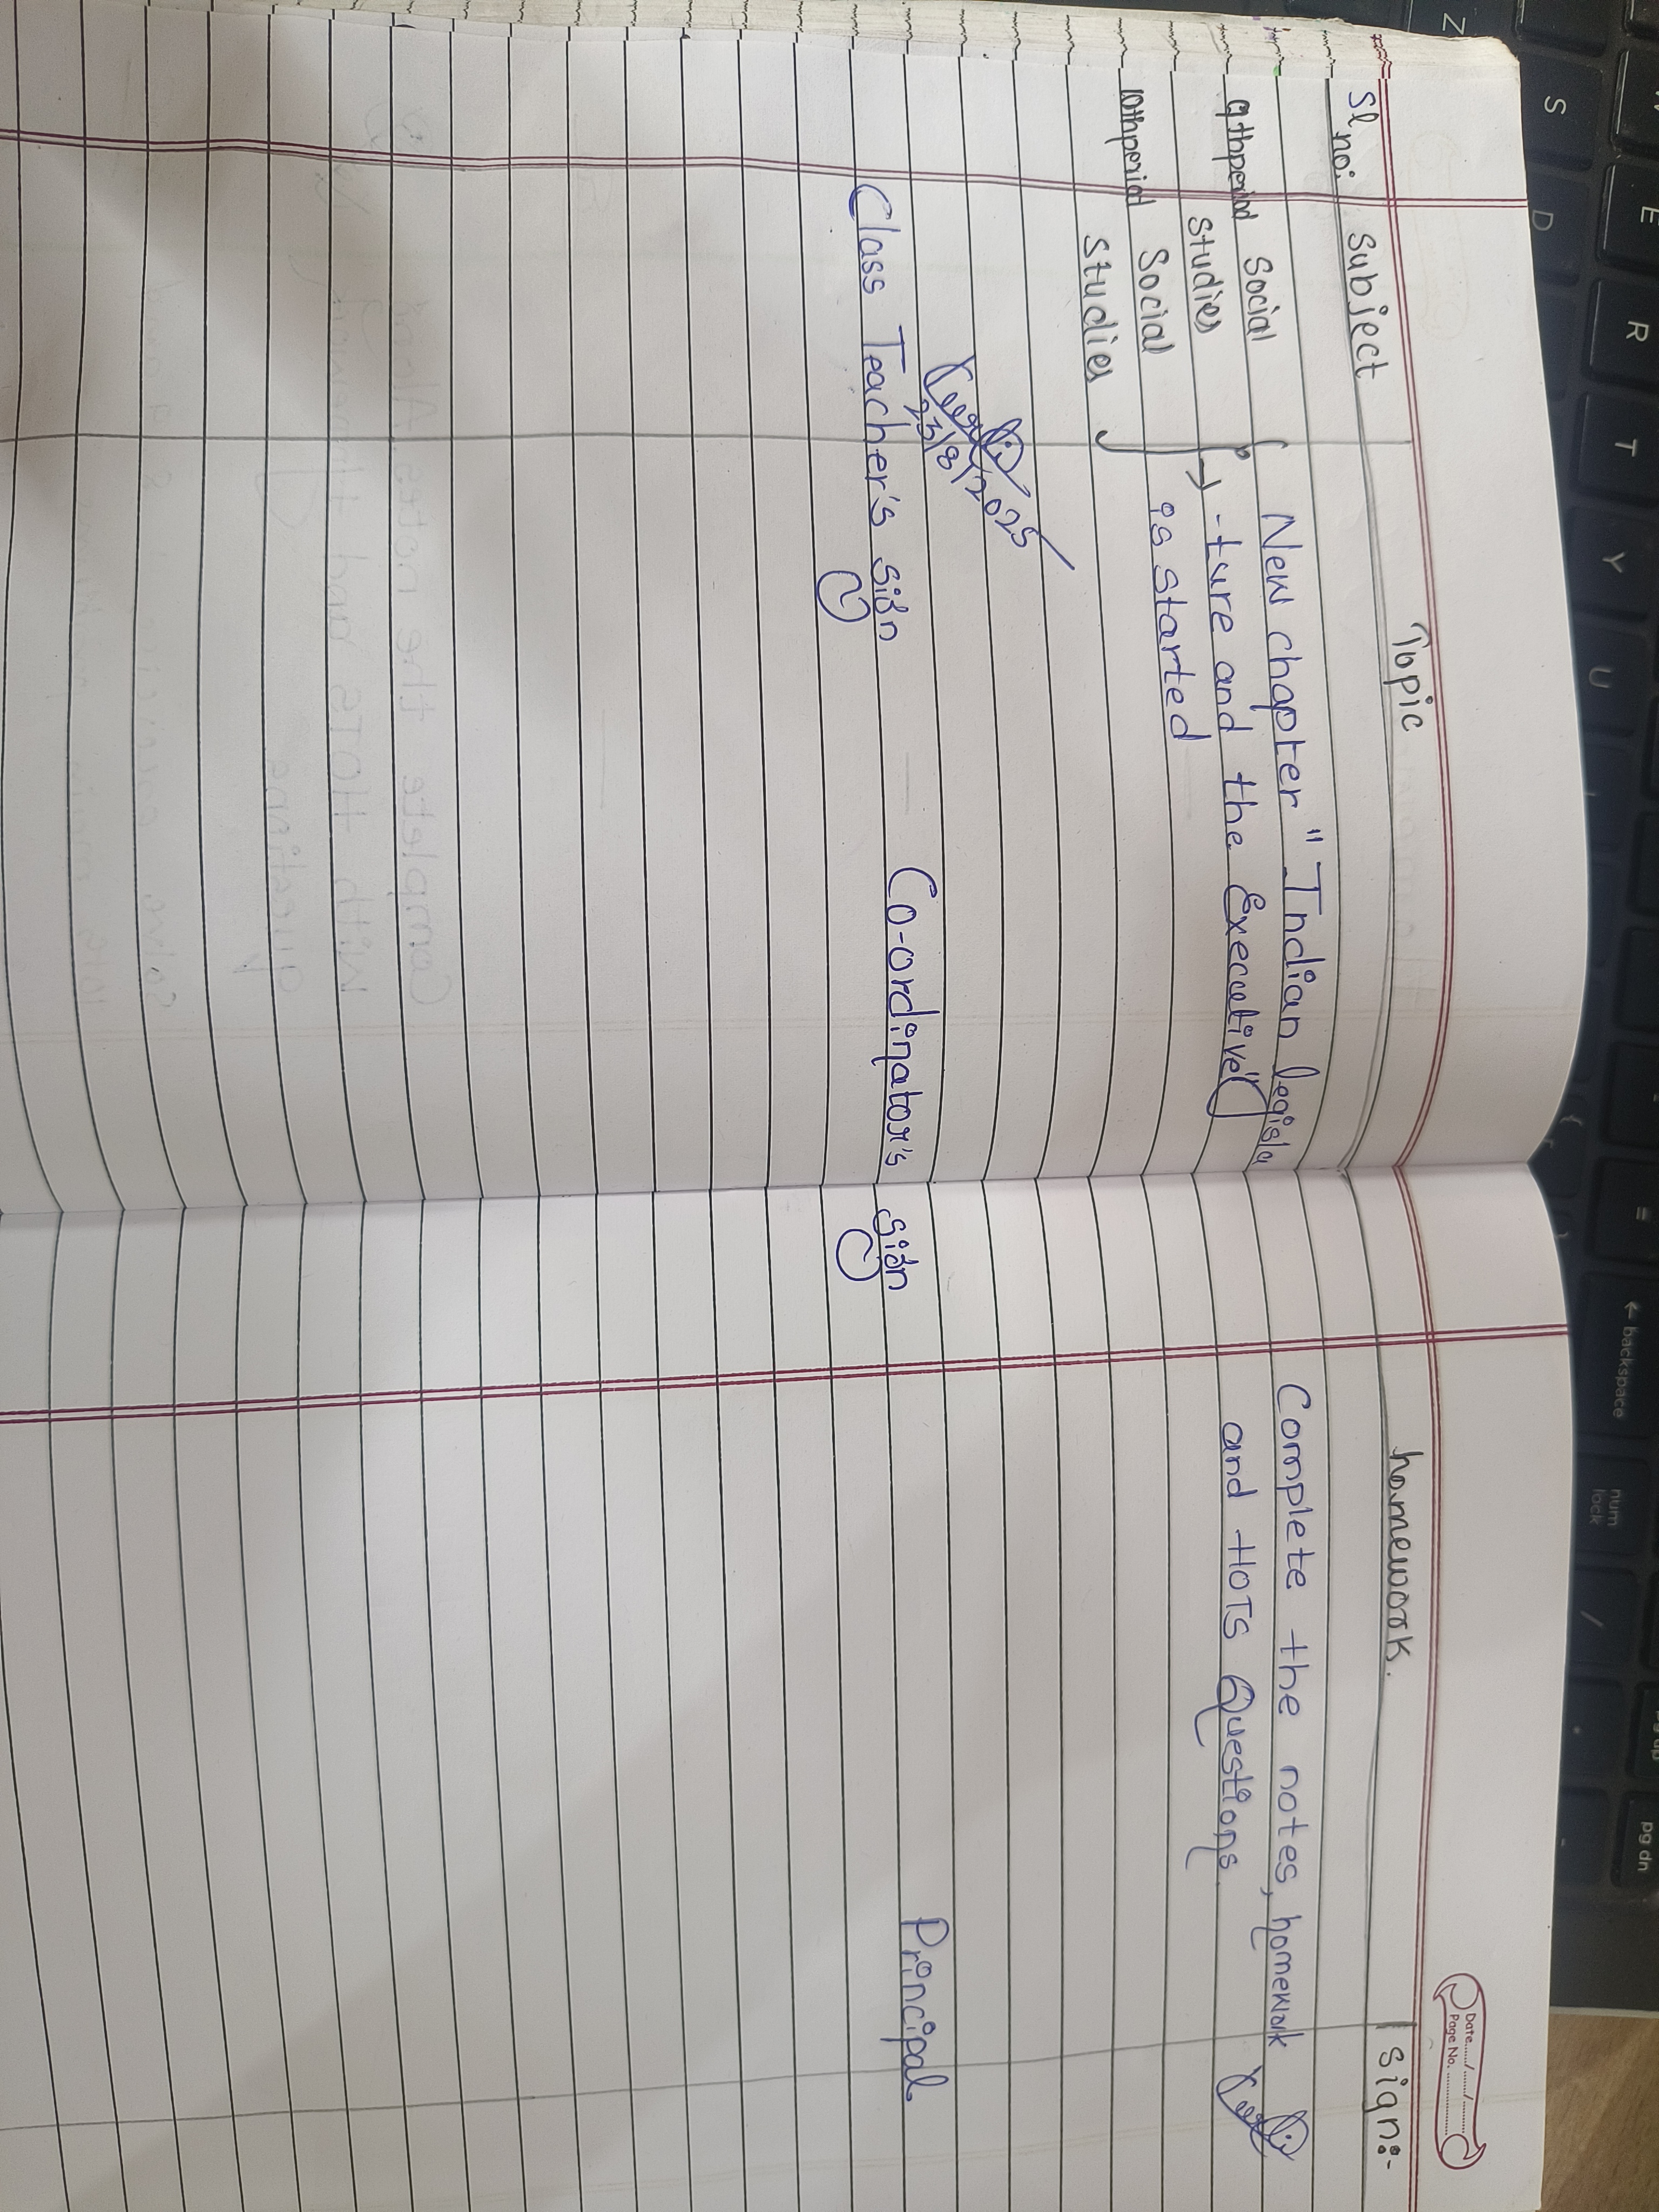 Date....../....../......
Page No. ................
Sl no: Subject Topic homework. Sign:-
9thperiod Social New chapter "Indian legisla Complete the notes, homework
Studies -ture and the Executive" and HOTS Questions.
10thperiod Social is started
Studies
23/8/2025
Class Teacher's Sign Co-ordinator's Sign Principal
Z
S
E
D
R
T
Y
U
=
← backspace
num
lock
/
pg dn